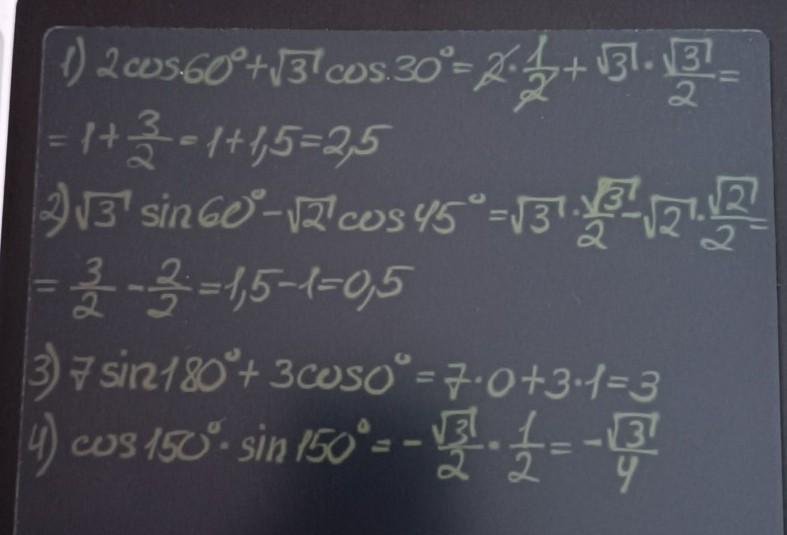 1) 2cos60°+√3 cos30°=2·1/2+√3·√3/2=
=1+3/2=1+1,5=2,5
2) √3 sin60°-√2 cos45°=√3·√3/2-√2·√2/2=
=3/2-2/2=1,5-1=0,5
3) 7sin180°+3cos0°=7·0+3·1=3
4) cos150°·sin150°=-√3/2·1/2=-√3/4